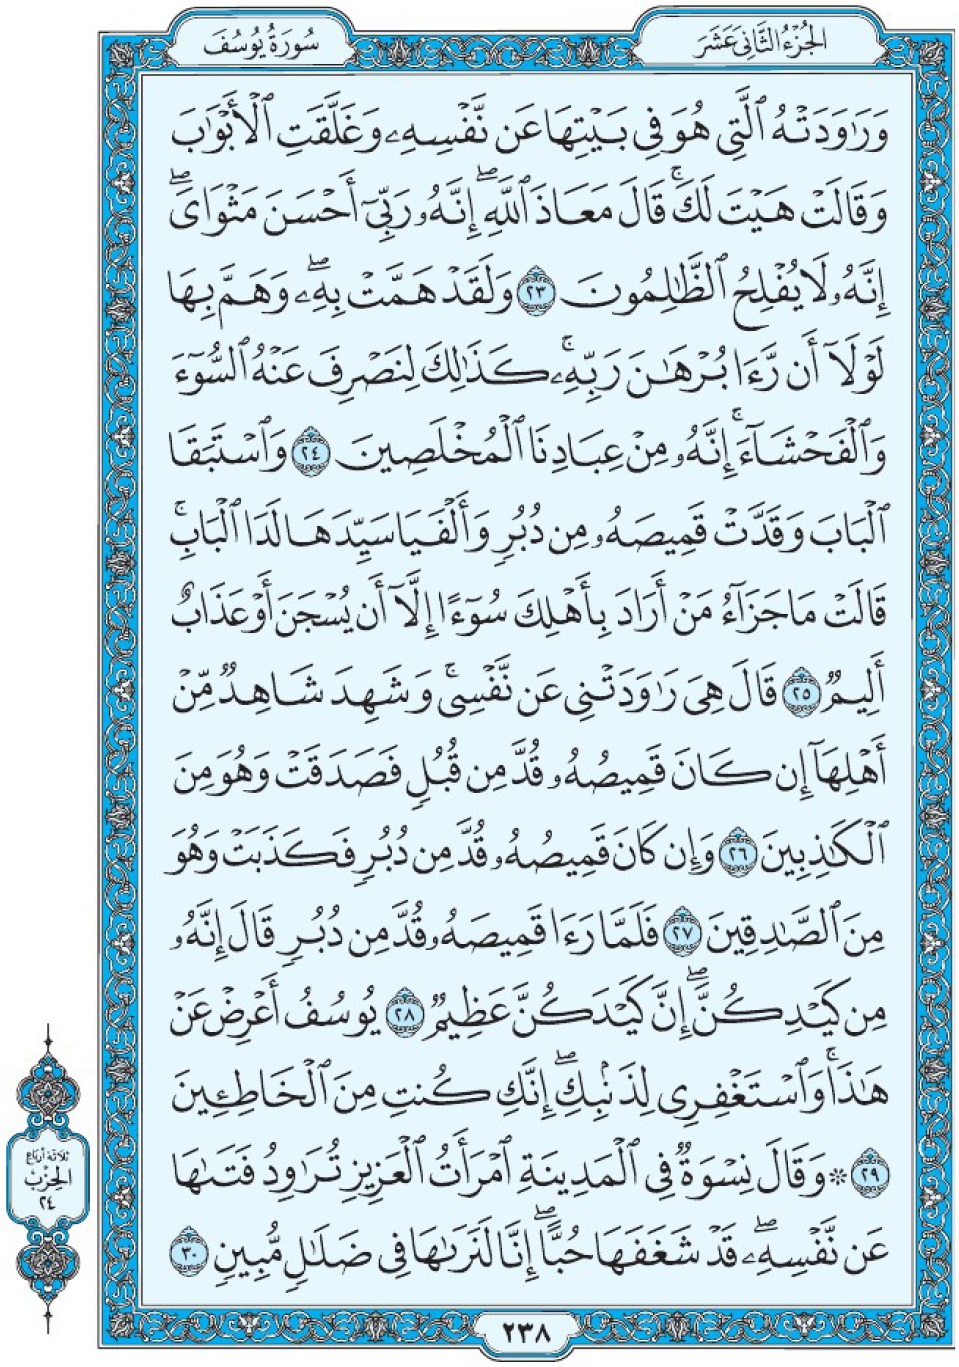 الجُزْءُ الثَّانِي عَشَرَ
سُورَةُ يُوسُفَ
وَرَٰوَدَتْهُ ٱلَّتِي هُوَ فِي بَيْتِهَا عَن نَّفْسِهِۦ وَغَلَّقَتِ ٱلْأَبْوَٰبَ
وَقَالَتْ هَيْتَ لَكَۚ قَالَ مَعَاذَ ٱللَّهِۖ إِنَّهُۥ رَبِّيٓ أَحْسَنَ مَثْوَايَۖ
إِنَّهُۥ لَا يُفْلِحُ ٱلظَّٰلِمُونَ ٢٣ وَلَقَدْ هَمَّتْ بِهِۦۖ وَهَمَّ بِهَا
لَوْلَآ أَن رَّءَا بُرْهَٰنَ رَبِّهِۦۚ كَذَٰلِكَ لِنَصْرِفَ عَنْهُ ٱلسُّوٓءَ
وَٱلْفَحْشَآءَۚ إِنَّهُۥ مِنْ عِبَادِنَا ٱلْمُخْلَصِينَ ٢٤ وَٱسْتَبَقَا
ٱلْبَابَ وَقَدَّتْ قَمِيصَهُۥ مِن دُبُرٖ وَأَلْفَيَا سَيِّدَهَا لَدَا ٱلْبَابِۚ
قَالَتْ مَا جَزَآءُ مَنْ أَرَادَ بِأَهْلِكَ سُوٓءًا إِلَّآ أَن يُسْجَنَ أَوْ عَذَابٌ
أَلِيمٞ ٢٥ قَالَ هِيَ رَٰوَدَتْنِي عَن نَّفْسِيۚ وَشَهِدَ شَاهِدٞ مِّنْ
أَهْلِهَآ إِن كَانَ قَمِيصُهُۥ قُدَّ مِن قُبُلٖ فَصَدَقَتْ وَهُوَ مِنَ
ٱلْكَٰذِبِينَ ٢٦ وَإِن كَانَ قَمِيصُهُۥ قُدَّ مِن دُبُرٖ فَكَذَبَتْ وَهُوَ
مِنَ ٱلصَّٰدِقِينَ ٢٧ فَلَمَّا رَءَا قَمِيصَهُۥ قُدَّ مِن دُبُرٖ قَالَ إِنَّهُۥ
مِن كَيْدِكُنَّۖ إِنَّ كَيْدَكُنَّ عَظِيمٞ ٢٨ يُوسُفُ أَعْرِضْ عَنْ
هَٰذَاۚ وَٱسْتَغْفِرِي لِذَنۢبِكِۖ إِنَّكِ كُنتِ مِنَ ٱلْخَاطِـِٔينَ
٢٩ ۞ وَقَالَ نِسْوَةٞ فِي ٱلْمَدِينَةِ ٱمْرَأَتُ ٱلْعَزِيزِ تُرَٰوِدُ فَتَىٰهَا
عَن نَّفْسِهِۦۖ قَدْ شَغَفَهَا حُبًّاۖ إِنَّا لَنَرَىٰهَا فِي ضَلَٰلٖ مُّبِينٖ ٣٠
ثلاثة أرباع
الحِزْبُ
٢٤
٢٣٨